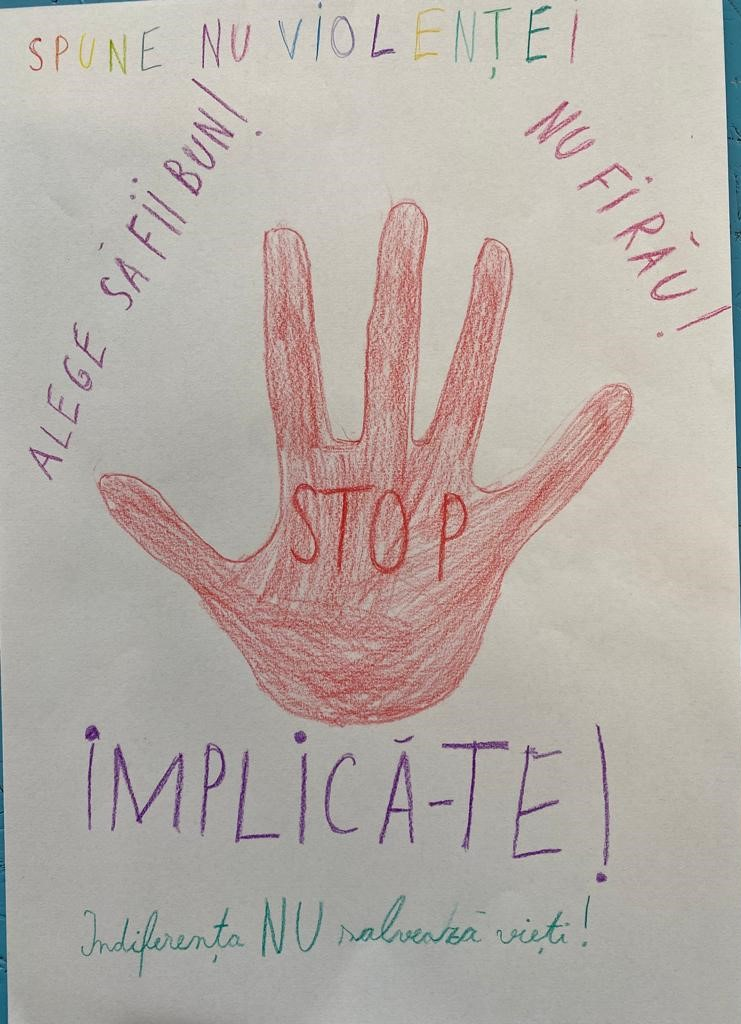 SPUNE NU VIOLENȚEI
ALEGE SĂ FII BUN!
NU FI RĂU!
STOP
IMPLICĂ-TE!
Indiferența NU salvează vieți!